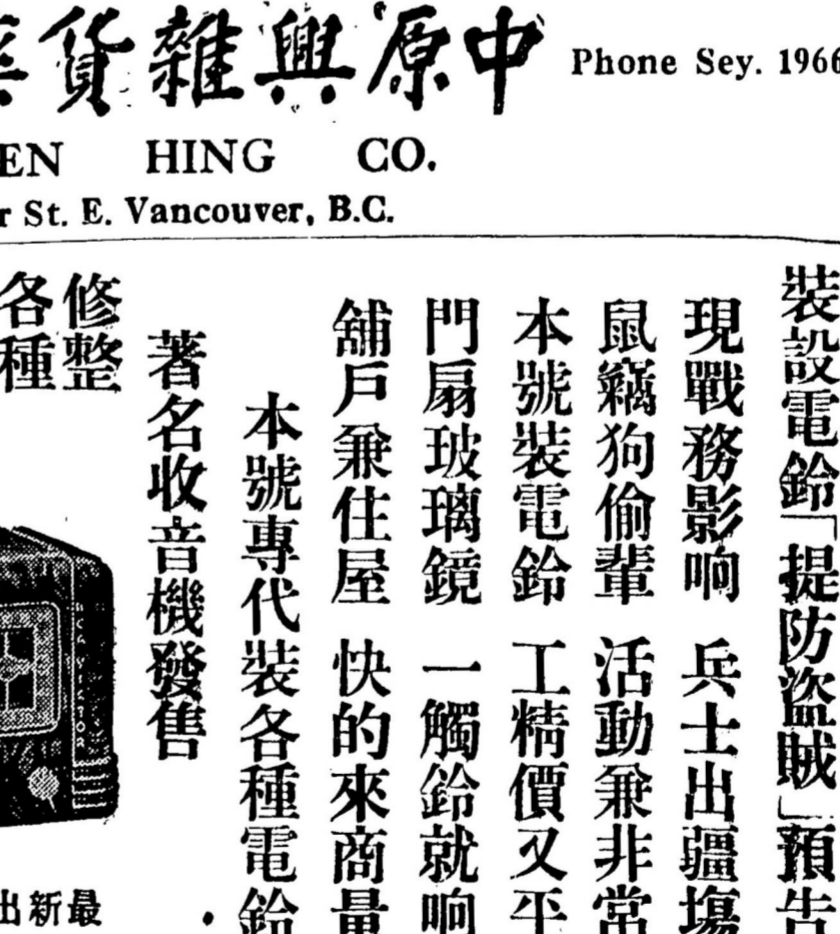 中原興雜貨
Phone Sey. 1966
EN HING CO.
r St. E. Vancouver, B.C.
裝設電鈴「提防盜賊」預告
現戰務影响 兵士出疆塲
鼠竊狗偷輩 活動兼非常
本號裝電鈴 工精價又平
門扇玻璃鏡 一觸鈴就响
舖戶兼住屋 快的來商量
本號專代裝各種電鈴
著名收音機發售
修整
各種
最新出